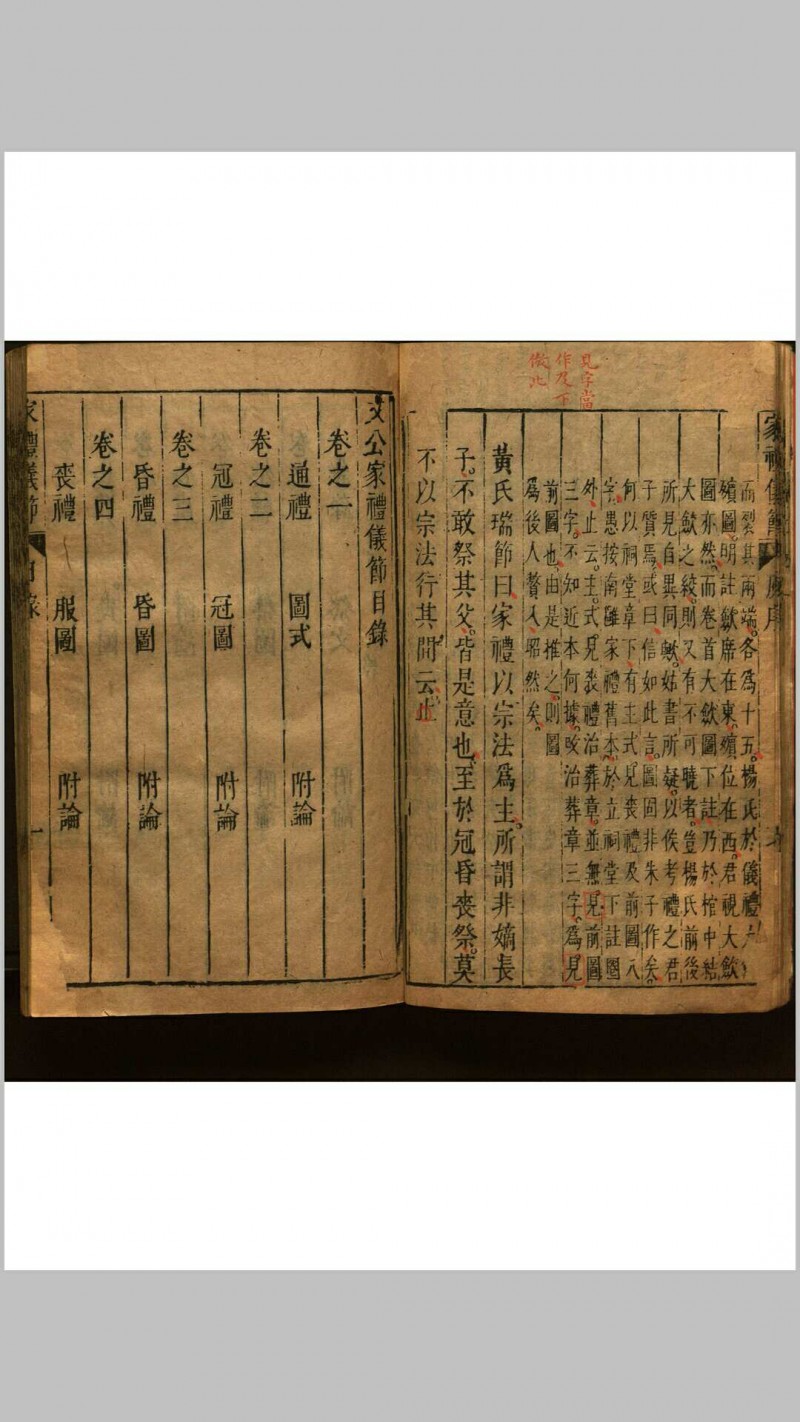 見字當
作及下
倣此
而裂其兩端各爲十五楊氏於儀禮
殯圖明註歛席在東殯位在西君視大歛
圖亦然而卷首大歛圖下註乃於棺中結
大歛之絞則又有不可曉者豈楊氏前後
所見自異同歟姑書所疑以俟考禮之君
子質焉或曰信如此言圖固非朱子作矣
何以祠堂章下有主式見喪禮及前圖八
字愚按南雝家禮舊本於立祠堂下註圈
外止云主式見喪禮治葬章並無見前圖
三字不知近本何據改治葬章三字爲見
前圖也由是推之則圖
爲後人贅入昭然矣
黃氏瑞節曰家禮以宗法爲主所謂非嫡長
子不敢祭其父皆是意也至於冠昏喪祭莫
不以宗法行其間云
文公家禮儀節目錄
卷之一
通禮 圖式 附論
卷之二
冠禮 冠圖 附論
卷之三
昏禮 昏圖 附論
卷之四
喪禮 服圖 附論
家禮儀節 目錄 一